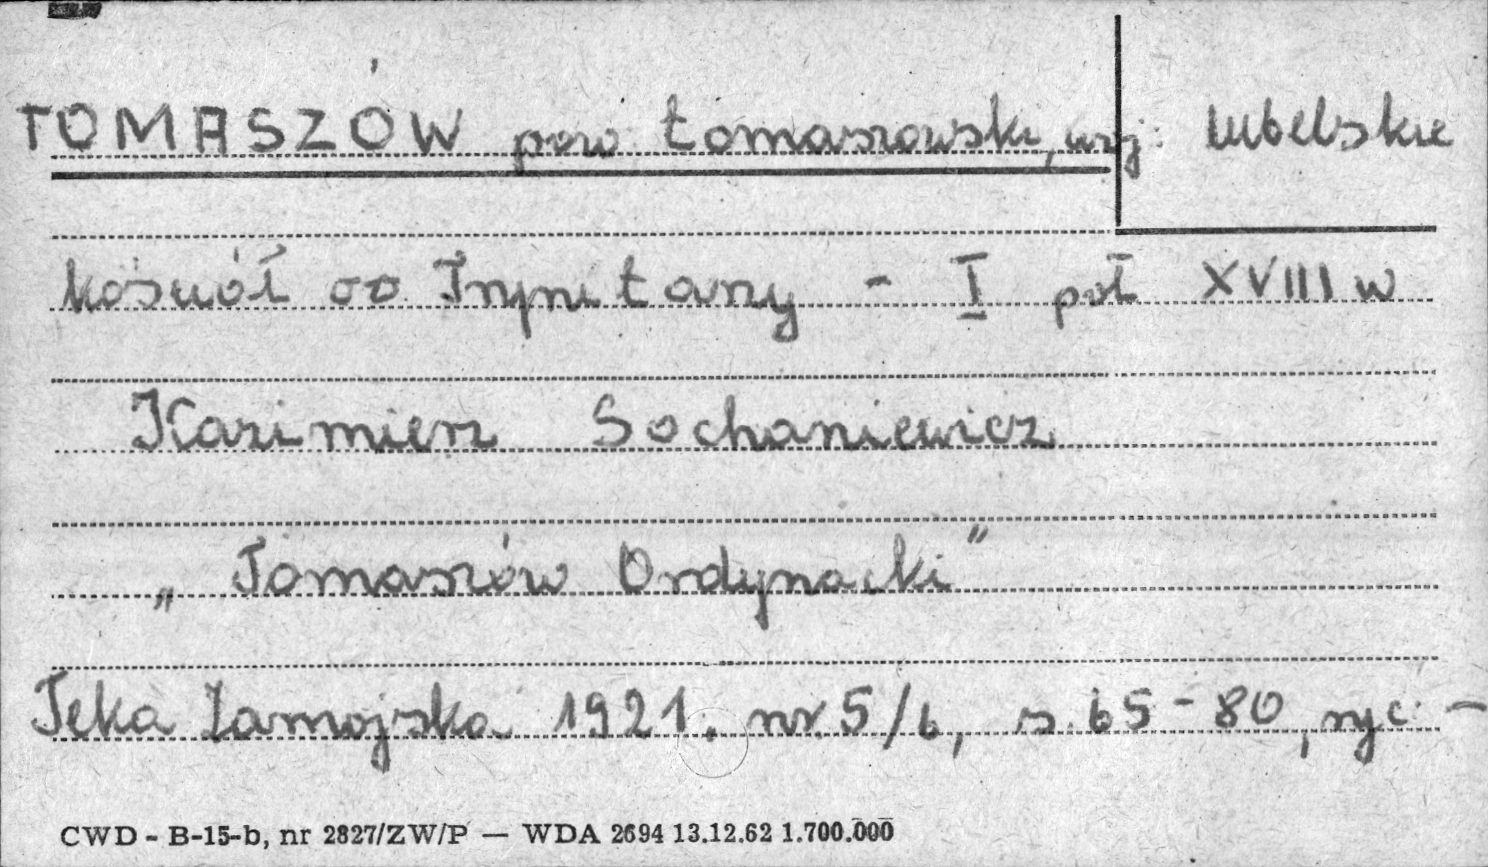 TOMASZÓW pow. tomaszowski, woj: lubelskie
kościół oo Trynitarzy - I poł XVIII w
Kazimierz Sochaniewicz
„Tomaszów Ordynacki”
Teka Zamojska 1921. nr. 5/6, s. 65-80, ryc. —
CWD - B-15-b, nr 2827/ZW/P — WDA 2694 13.12.62 1.700.000